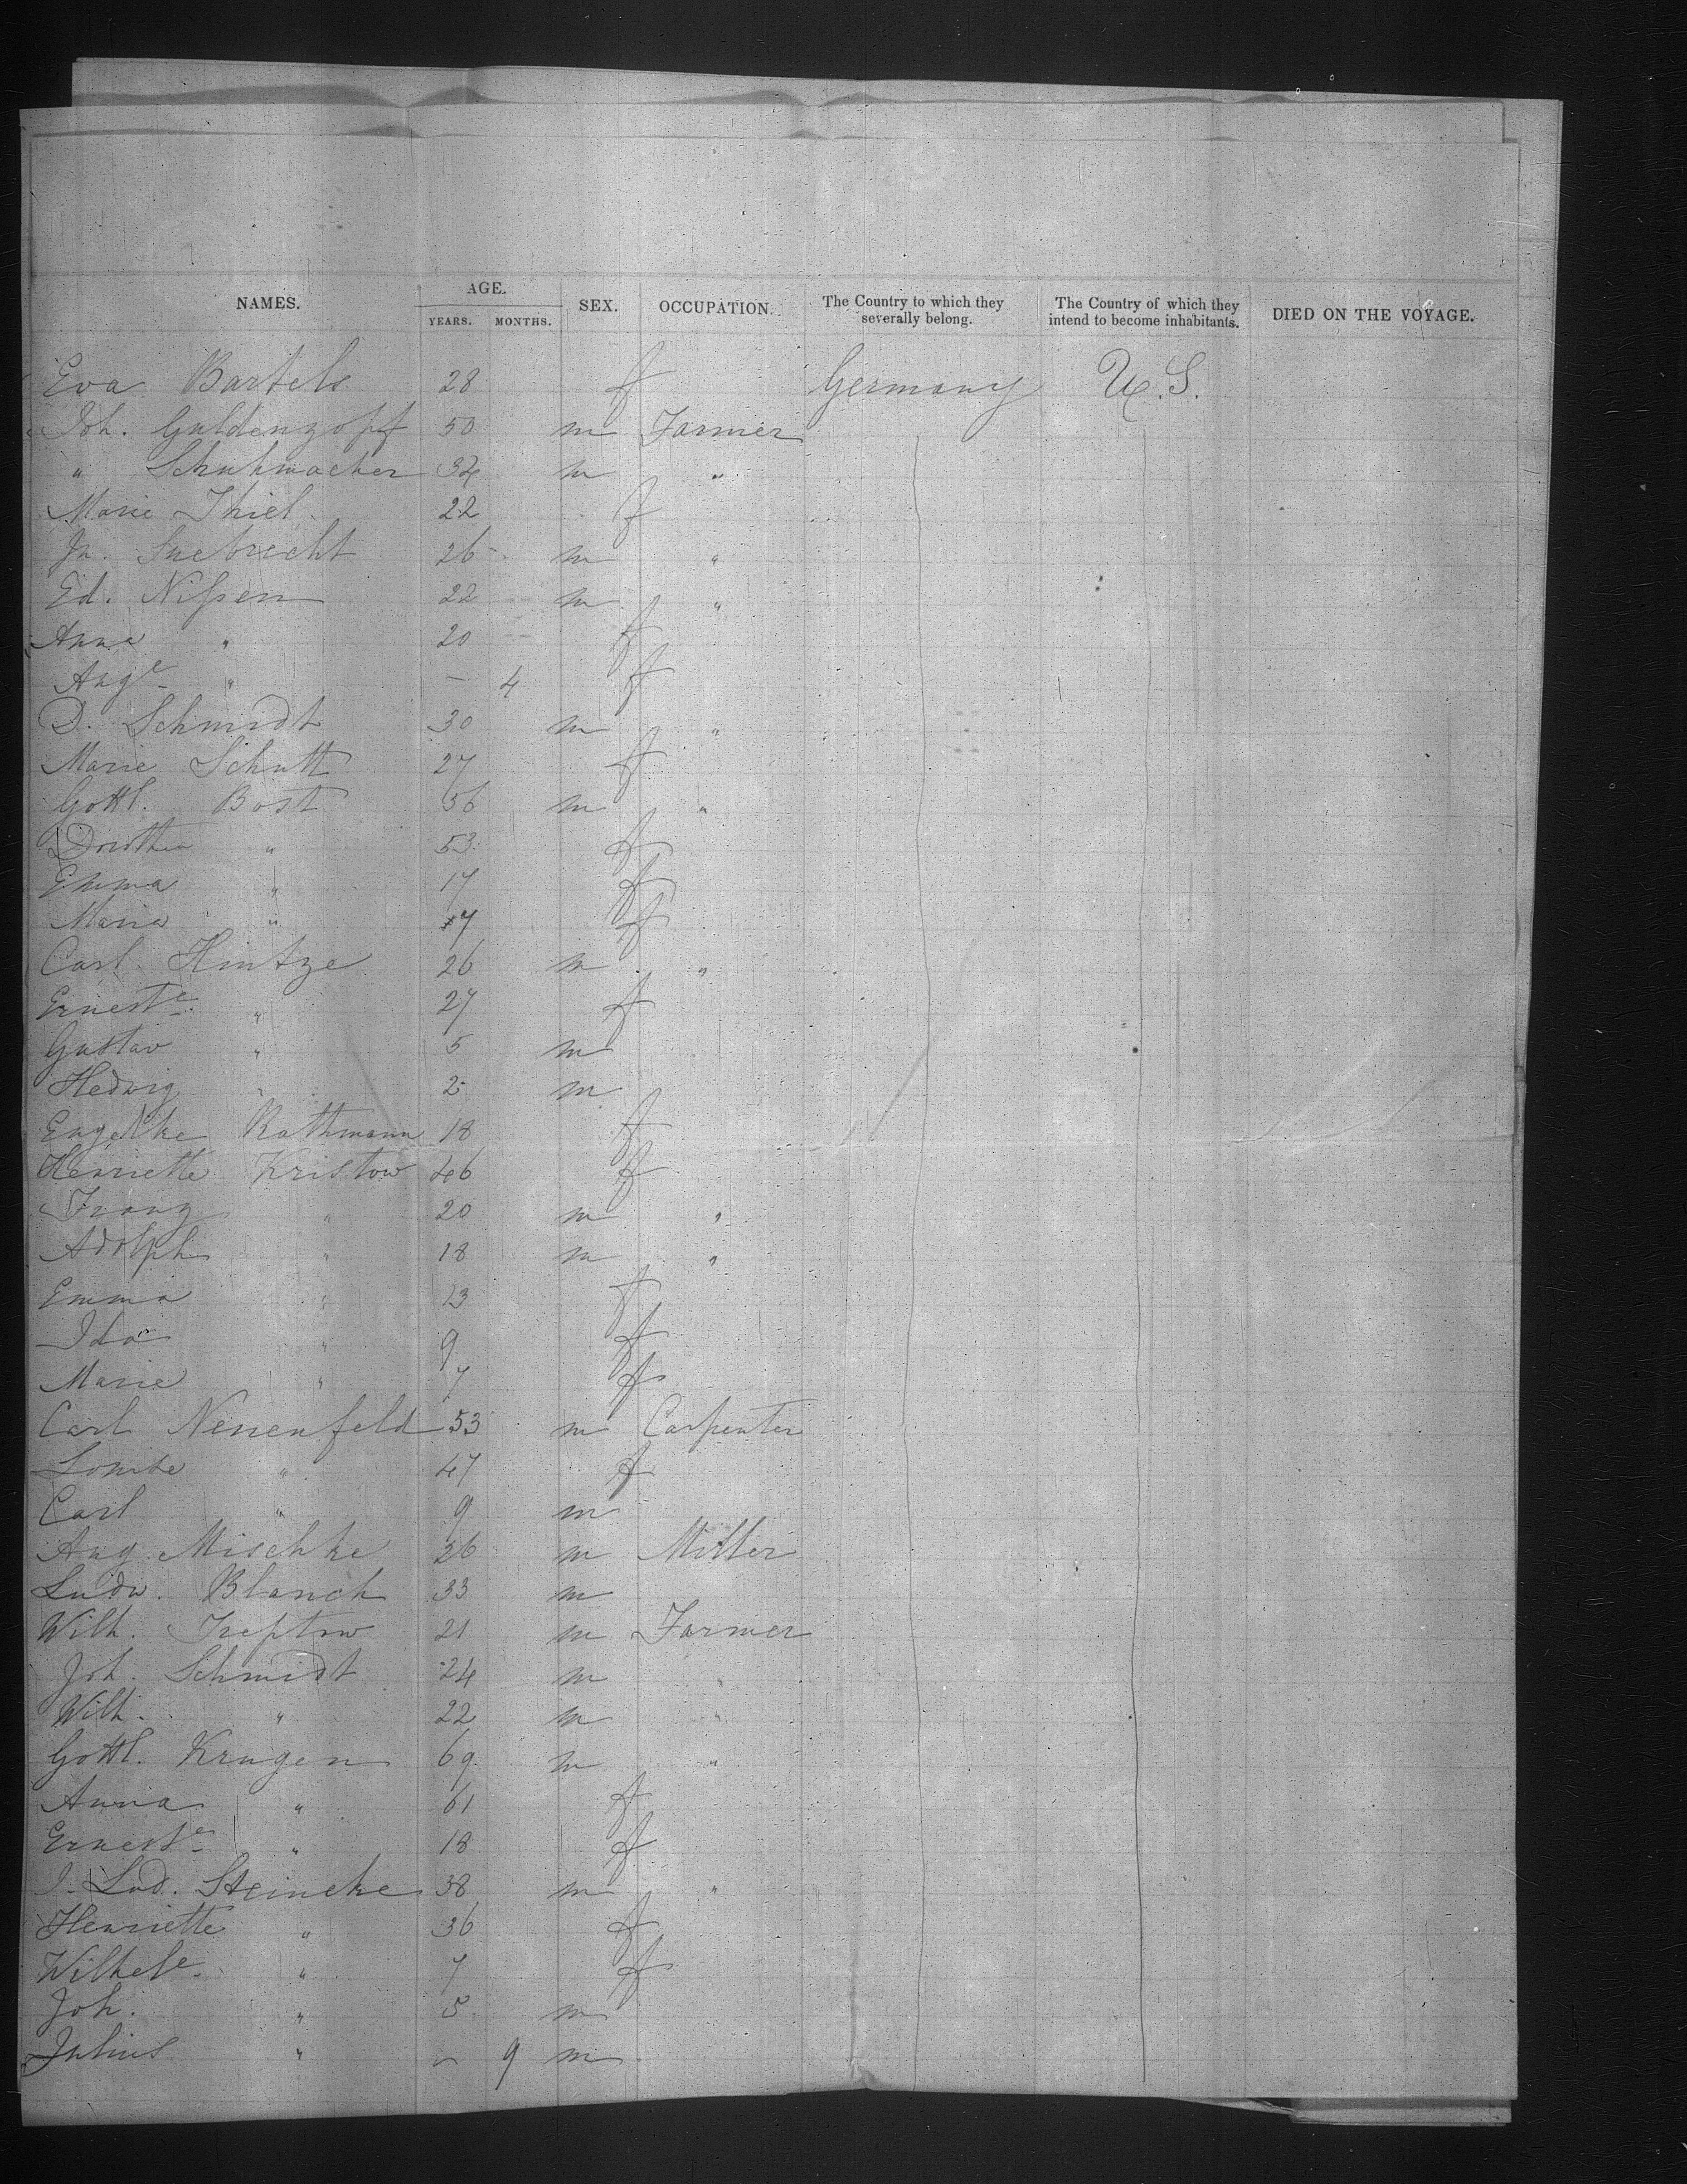 NAMES. AGE. YEARS. MONTHS. SEX. OCCUPATION. The Country to which they severally belong. The Country of which they intend to become inhabitants. DIED ON THE VOYAGE.
Eva Bartels 28 f Germany U.S.
Joh. Guldenzopf 50 m Farmer
" Schuhmacher 34 m "
Marie Thiel 22 f
26 m "
Ed. Nißen 22 m "
Anna " 20 f
Auge " — 4 f
D. Schmidt 30 m "
Marie Schutt 27 f
Gottl. Bost 56 m "
Dorothea " 53 f
Emma " 17 f
Maria " 7 f
Carl Hintze 26 m "
Erneste " 27 f
Gustav " 5 m
Hedwig " 2 m
Engelke Rathmann 18 f
Henriette Kristow 46 f
Franz " 20 m "
Adolph " 18 m "
Emma " 13 f
Ida " 9 f
Marie " 7 f
Carl Neuenfeld 53 m Carpenter
Louise " 47 f
Carl " 9 m
Aug. Mischke 26 m Miller
Ludw. Blanck 33 m
Wilh. Treptow 21 m Farmer
Joh. Schmidt 24 m "
Wilh. " 22 m "
Gottl. Krugen 69 m "
Anna " 61 f
Erneste " 18 f
J. Lud. Steincke 38 m "
Henriette " 36 f
Wilhele. " 7 f
Joh. " 5 m
Julius " — 9 m